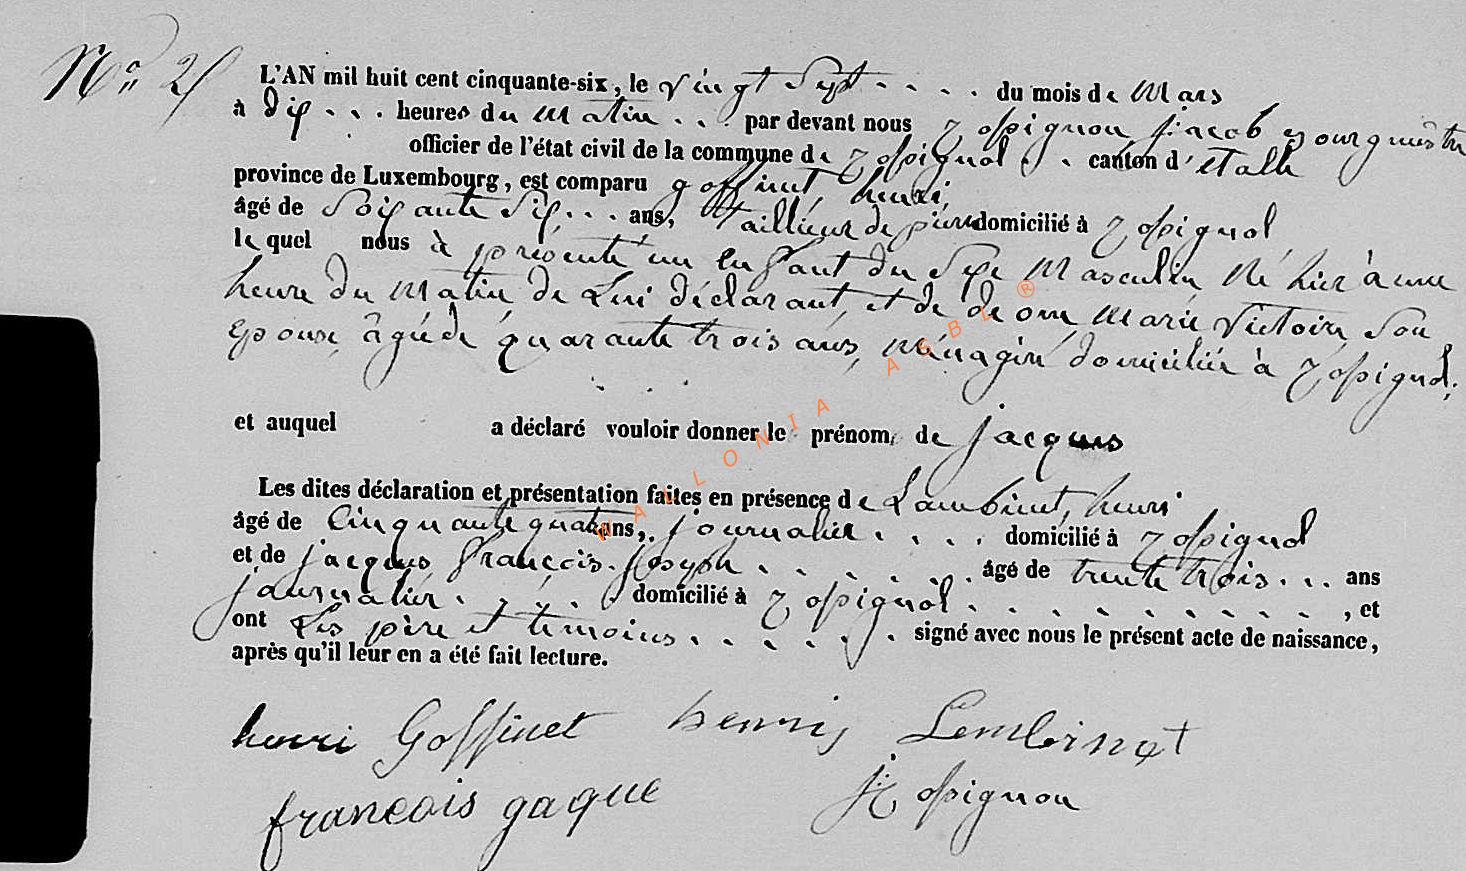 No 25
L'AN mil huit cent cinquante-six, le vingt Sept . . . . du mois de Mars
à dix . . . heures du matin . . . par devant nous Rossignon jacob Bourguestre
officier de l'état civil de la commune de Rossignol . . canton d'étalle
province de Luxembourg, est comparu goffinet, henri,
âgé de Soixante Six . . . ans, tailleur de pierre domicilié à Rossignol
lequel nous à présenté un Enfant du Sexe Masculin Né hier à une
heure du Matin de Lui déclarant, et de de om Marie Victoire Son
Epouse, âgée de quarante trois ans, ménagère domiciliée à Rossignol;
et auquel a déclaré vouloir donner le prénom de jacques
Les dites déclaration et présentation faites en présence de Lambinet, henri
âgé de Cinquante quatre ans, journalier . . . . domicilié à Rossignol
et de jacques françois joseph . . . . . . . âgé de trente trois . . . ans
journalier . . . . domicilié à Rossignol . . . . . . . . . . , et
ont Les père et témoins . . . . . . signé avec nous le présent acte de naissance,
après qu'il leur en a été fait lecture.
henri Goffinet henri Lembinet
francois gaque J Rossignon
WALONIA ASBL ®